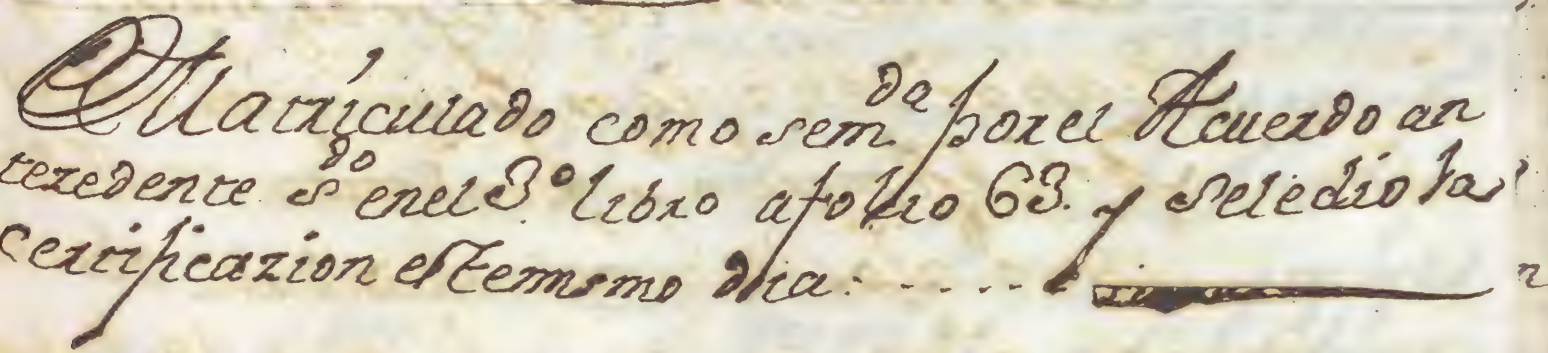 Matriculado como sem.da por el Acuerdo an
tezedente s.do en el 3.o libro a folio 63. y se le dio la
certificazion este mismo dia: